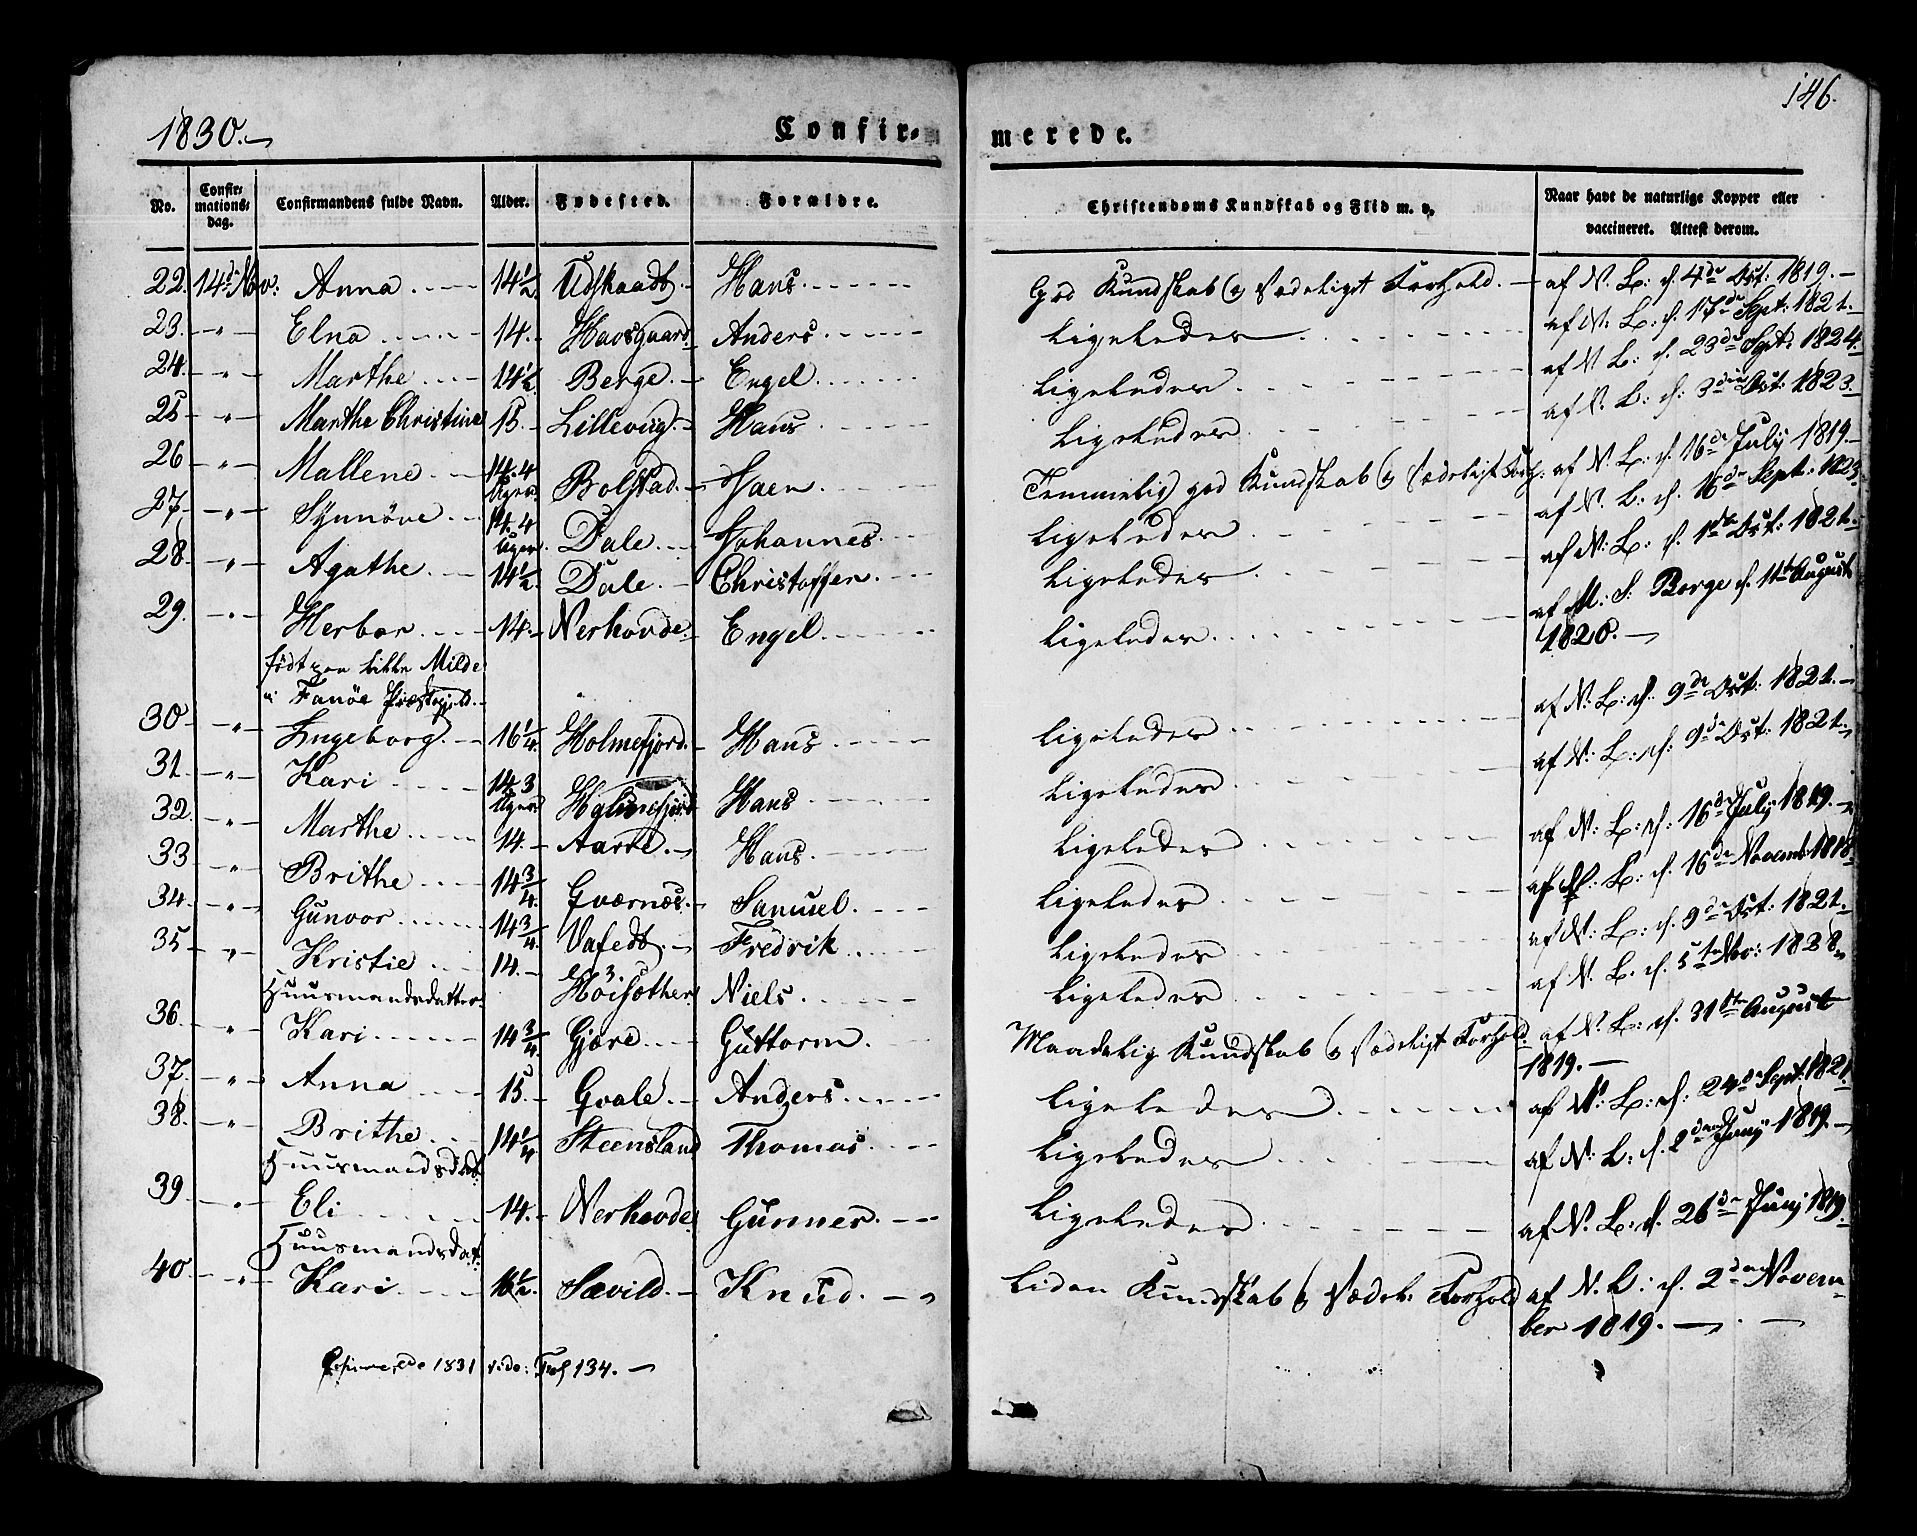 146.
1830.
Confirmerede.
No. Confirmationsdag. Confirmandens fulde Navn. Alder. Fødested. Forældre. Christendoms Kundskab og Flid m. v. Naar havt de naturlige Kopper eller vaccineret. Attest derom.
22. 14de Nov: Anna 14½ Udskaadt Hans God Kundskab og sædeligt Forhold. af N. L: d. 4de Oct: 1819.
23. " Elna 14. Havsgaard Anders Ligeledes af N. L: d. 17de Sept: 1821.
24. " Marthe 14½ Berge Engel Ligeledes af N. L: d. 23de Sept: 1824.
25 " Marthe Christine 15. Lilleviig Hans Ligeledes af N. L: d. 3die Oct: 1823.
26 " Mallene 14. 4 Uger Bolstad Haen Ligeledes af N. L: d. 16de July 1819.
27. " Synnöve 14. 4 Uger Dale Johannes Temmelig god Kundskab og sædeligt Forh. af N. L: d. 16de Sept: 1823.
28. " Agathe 14½ Dale Christoffer Ligeledes af N. L: d. 1ste Oct: 1821.
29. " Herbor 14. Nerhovde Engel Ligeledes af M. S. Berge d. 11te August 1820.
født paa Lille Milde
i Fanöe Præstegield.
30. " Ingeborg 16¼ Holmefjord Hans Ligeledes af N. L: d. 9de Oct: 1821.
31. " Kari 14. 3 Uger Holmefjord Hans Ligeledes af N. L: d. 9de Oct: 1821.
32. " Marthe 14. Aarre Hans Ligeledes af N. L: d. 16de July 1819.
33 " Brithe 14¾ Gværnæs Samuel Ligeledes af N. L: d. 16de Novemb: 1818.
34. " Gunvor 14¾ Vafedt Fredrik Ligeledes af N. L: d. 9de Oct: 1821.
35. " Kristie 14. Höisæther Niels Ligeledes af N. L. d. 5te Nov: 1828.
Huusmandsdatter
36. " Kari 14¾ Gjære Guttorm Maadelig Kundskab og sædeligt Forhold af N. L: d. 31te August 1819.
37. " Anna 15. Qvale Anders Ligeledes af N. L: d. 24de Sept: 1821.
38. " Brithe 14¼ Steensland Thomas Ligeledes af N. L: d. 2den Juny 1819.
Huusmandsdat:
39. " Eli 14. Nerhovde Gunner Ligeledes af N. L: d. 26de Juny 1819.
Huusmandsdat:
40 " Kari 16½ Sævild Knud Liden Kundskab og sædel: Forhold af N. L: d. 2den November 1819.
1831 vide: Fol 134.